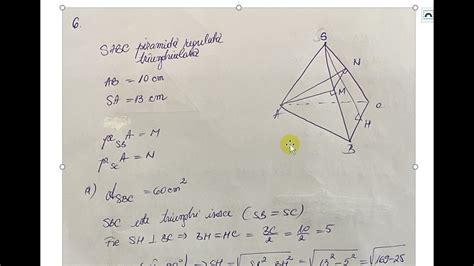 6.
SABC piramidă regulată
triunghiulară
AB = 10 cm
SA = 13 cm
pr_SB A = M
pr_SC A = N
a) A_SBC = 60 cm²
SBC este triunghi isosc (SB = SC)
Fie SH ⊥ BC ⇒ BH = HC = BC/2 = 10/2 = 5
⇒ SH = √SB² - BH² = √13² - 5² = √169 - 25
S
N
M
A
C
H
B